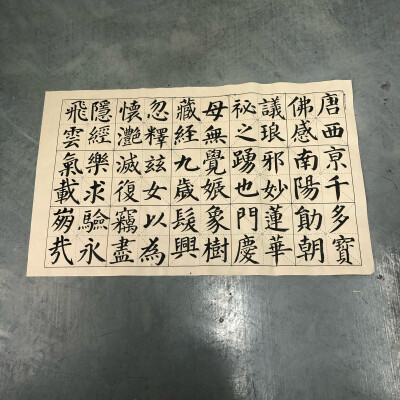 唐西京千多寶
佛感南陽勛朝
議琅邪妙蓮華
祕之踴也門慶
母無覺娠象樹
藏經九歲髮興
忽釋玆女以為
懷灔滅復竊盡
隱經樂求驗永
飛雲氣載